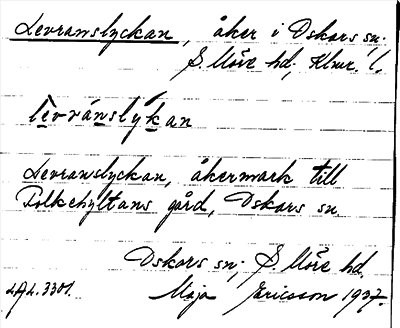 Levranslyckan, åker i Oskars sn.
S. Möre hd, Klmr. l.
levránslykan
Levranslyckan, åkermark till
Polkehyltans gård, Oskars sn.
Oskars sn, S. Möre hd.
ULA 3301. Maja Ericsson 1937.